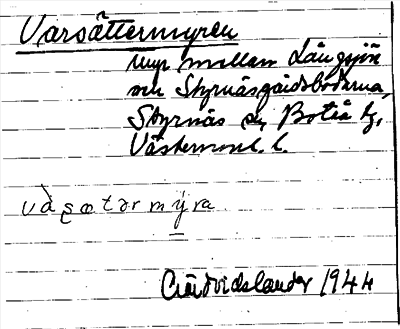 Varsättermyren
myr mellan Långsjön
och Styrnäsgårdsbodarna,
Styrnäs sn, Boteå tg,
Västernorrl. l.
vàsætər mýra
Lidvidslander 1944